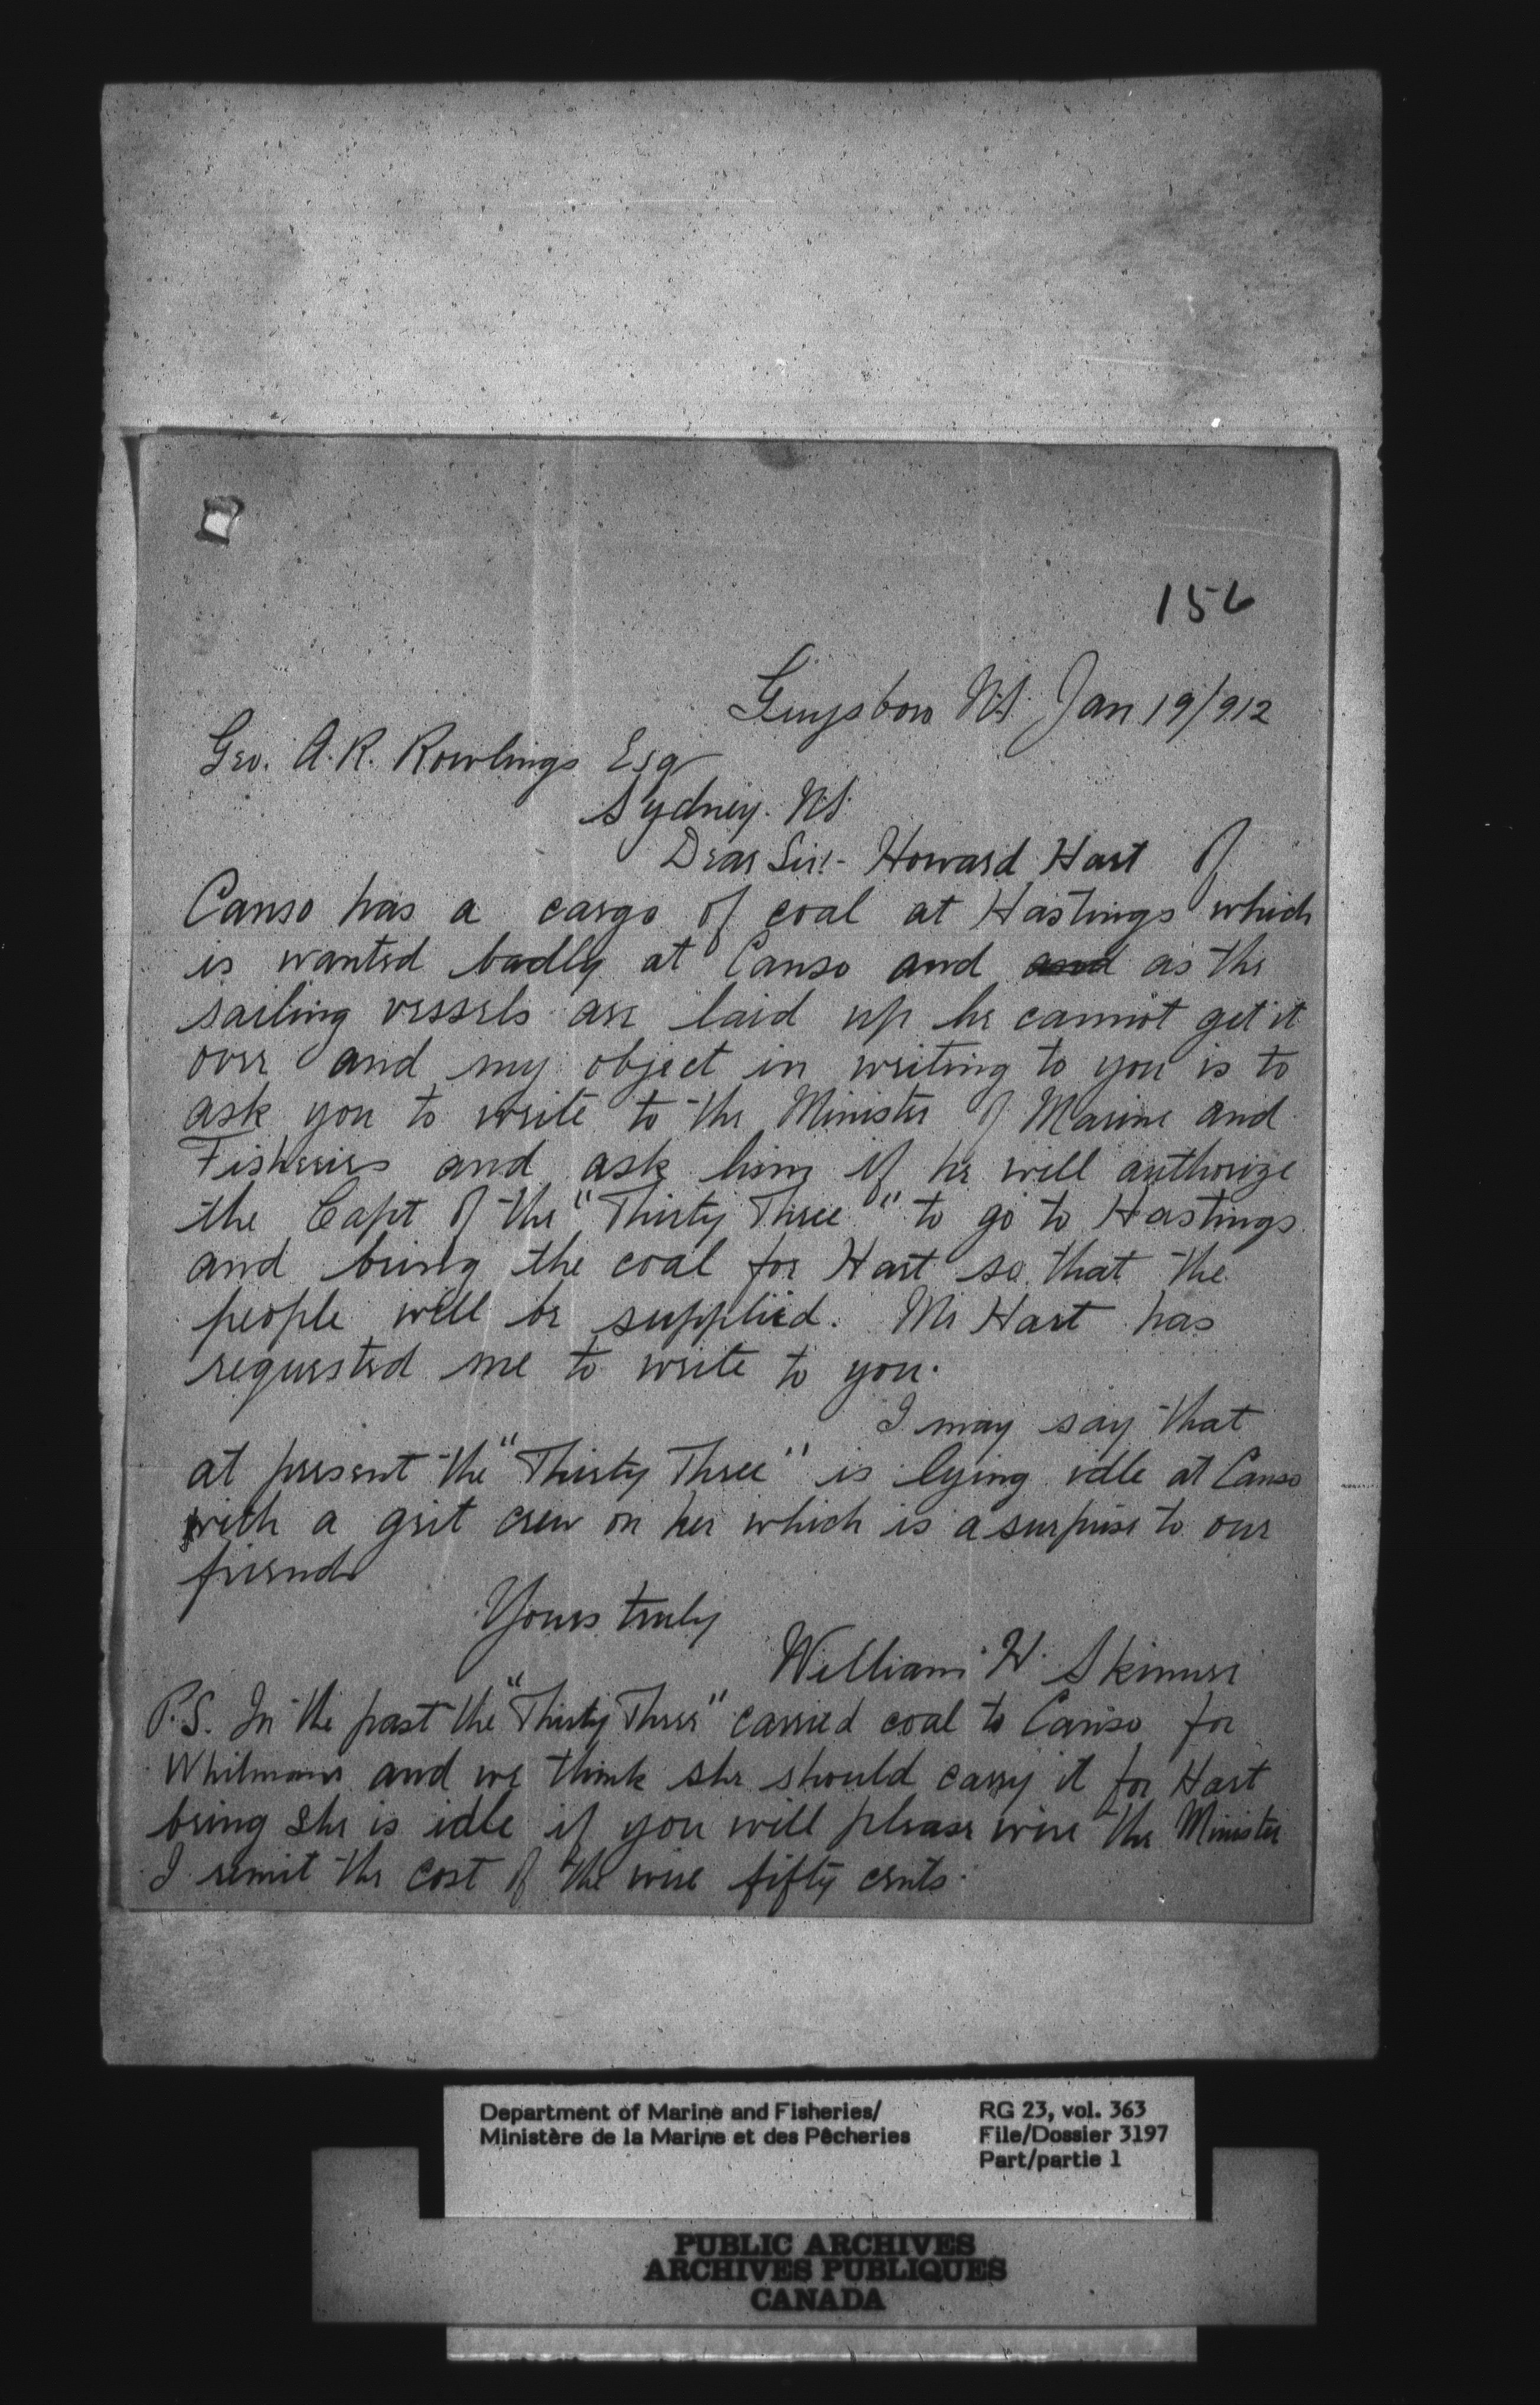 156
Guysboro N.S. Jan 19/912
Geo. A.R. Rowlings Esq
Sydney. N.S.
Dear Sir:- Howard Hart of
Canso has a cargo of coal at Hastings which
is wanted badly at Canso and and as the
sailing vessels are laid up he cannot get it
over and my object in writing to you is to
ask you to write to the Minister of Marine and
Fisheries and ask him if he will authorize
the Capt of the "Thirty Three" to go to Hastings
and bring the coal for Hart so that the
people will be supplied. Mr Hart has
requested me to write to you.
I may say that
at present the "Thirty Three" is lying idle at Canso
with a grit crew on her which is a surprise to our
friends
Yours truly
William H. Skinner
P.S. In the past the "Thirty Three" carried coal to Canso for
Whitmans and we think she should carry it for Hart
being she is idle if you will please wire the Minister
I remit the cost of the wire fifty cents.
Department of Marine and Fisheries/
Ministère de la Marine et des Pêcheries
RG 23, vol. 363
File/Dossier 3197
Part/partie 1
PUBLIC ARCHIVES
ARCHIVES PUBLIQUES
CANADA